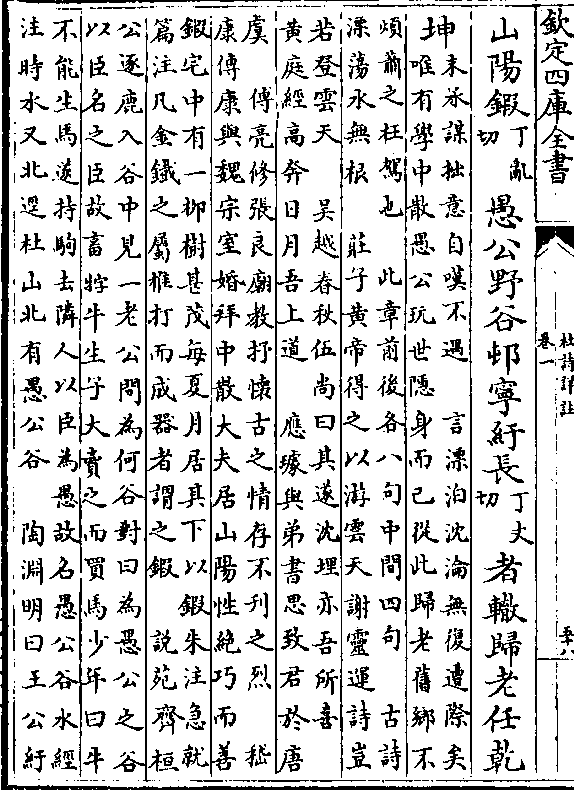 欽定四庫全書
杜詩詳註
卷一
五十八
山陽鍛丁亂切愚公野谷邨寧紆長丁丈切者轍歸老任乾
坤末承謀拙意自嘆不遇 言漂泊沈淪無復遭際矣
唯有學中散愚公玩世隱身而已從此歸老舊鄉不
煩蕭之枉駕也 此章前後各八句中間四句 古詩
漂蕩永無根 莊子黃帝得之以游雲天謝靈運詩豈
若登雲天 吳越春秋伍尚曰其遂沈埋亦吾所喜
黃庭經高奔日月吾上道 應璩與弟書思致君於唐
虞 傅亮修張良廟教抒懷古之情存不刊之烈 嵇
康傳康與魏宗室婚拜中散大夫居山陽性絶巧而善
鍛宅中有一柳樹甚茂每夏月居其下以鍛朱注急就
篇注凡金鐵之屬椎打而成器者謂之鍛 說苑齊桓
公逐鹿入谷中見一老公問為何谷對曰為愚公之谷
以臣名之臣故畜牸牛生子大賣之而買馬少年曰牛
不能生馬遂持駒去隣人以臣為愚故名愚公谷水經
注時水又北逕杜山北有愚公谷 陶淵明曰王公紆